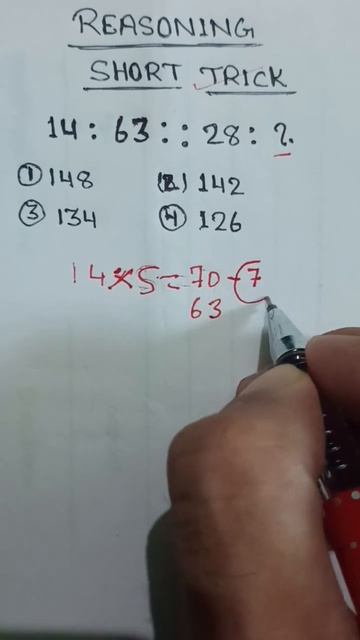 REASONING
SHORT TRICK
14 : 63 : : 28 : ?.
① 148 (2) 142
③ 134 ④ 126
14 × 5 = 70 - 7
63